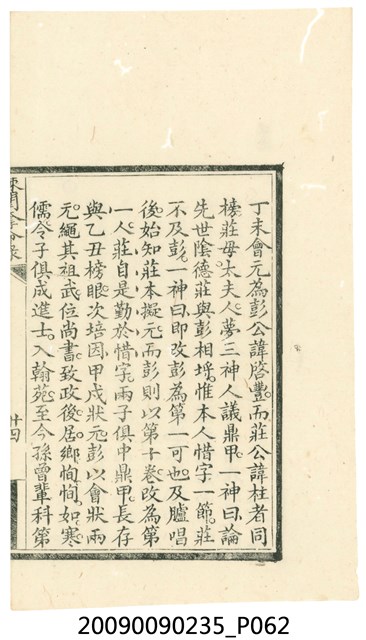 丁未會元為彭公諱啓豐而莊公諱柱者同
榜莊母太夫人夢三神人議鼎甲一神曰論
先世陰德莊與彭相埒惟本人惜字一節莊
不及彭一神曰即改彭為第一可也及臚唱
後始知莊本擬元而彭則以第十卷改為第
一人莊自是勤於惜字兩子俱中鼎甲長存
與乙丑榜眼次培因甲戌狀元彭以會狀兩
元繩其祖武位尚書致政後居鄉恂恂如寒
儒令子俱成進士入翰苑至今孫曾輩科第
廿四
20090090235_P062